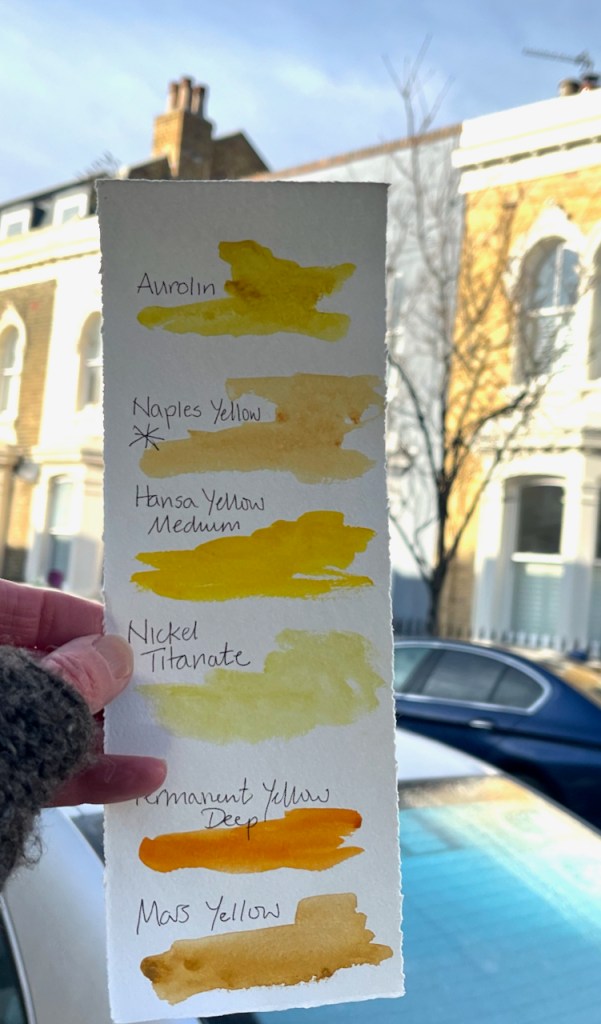 Aurolin
Naples Yellow
Hansa Yellow
Medium
Nickel
Titanate
Permanent Yellow
Deep
Mars Yellow